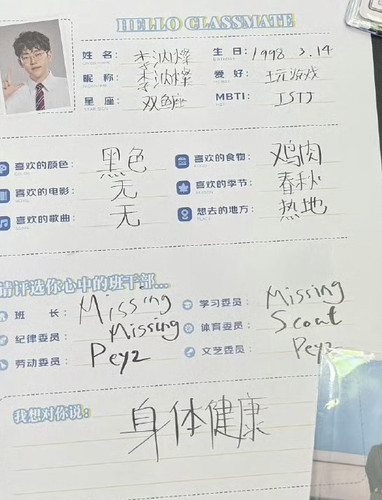 HELLO CLASSMATE
姓名: 李汭燦 生日: 1998.3.14
昵称: 李汭燦 爱好: 玩游戏
星座: 双鱼座 MBTI: ISTJ
喜欢的颜色: 黑色 喜欢的食物: 鸡肉
喜欢的电影: 无 喜欢的季节: 春秋
喜欢的歌曲: 无 想去的地方: 热地
请评选你心中的班干部...
班长: Missing 学习委员: Missing
纪律委员: Missing 体育委员: Scout
劳动委员: Peyz 文艺委员: Peyz
我想对你说:
身体健康